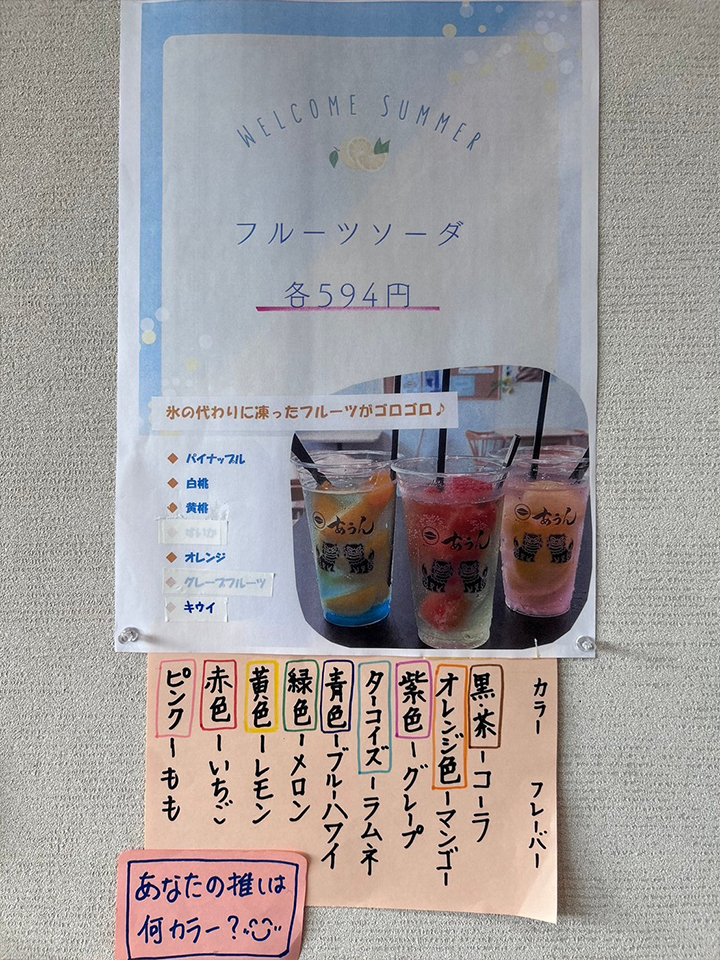 WELCOME SUMMER
フルーツソーダ
各594円
氷の代わりに凍ったフルーツがゴロゴロ♪
パイナップル
白桃
黄桃
すいか
オレンジ
グレープフルーツ
キウイ
あうん
あうん
あうん
カラー フレーバー
黒・茶ーコーラ
オレンジ色ーマンゴー
紫色ーグレープ
ターコイズーラムネ
青色ーブルーハワイ
緑色ーメロン
黄色ーレモン
赤色ーいちご
ピンクーもも
あなたの推しは
何カラー?